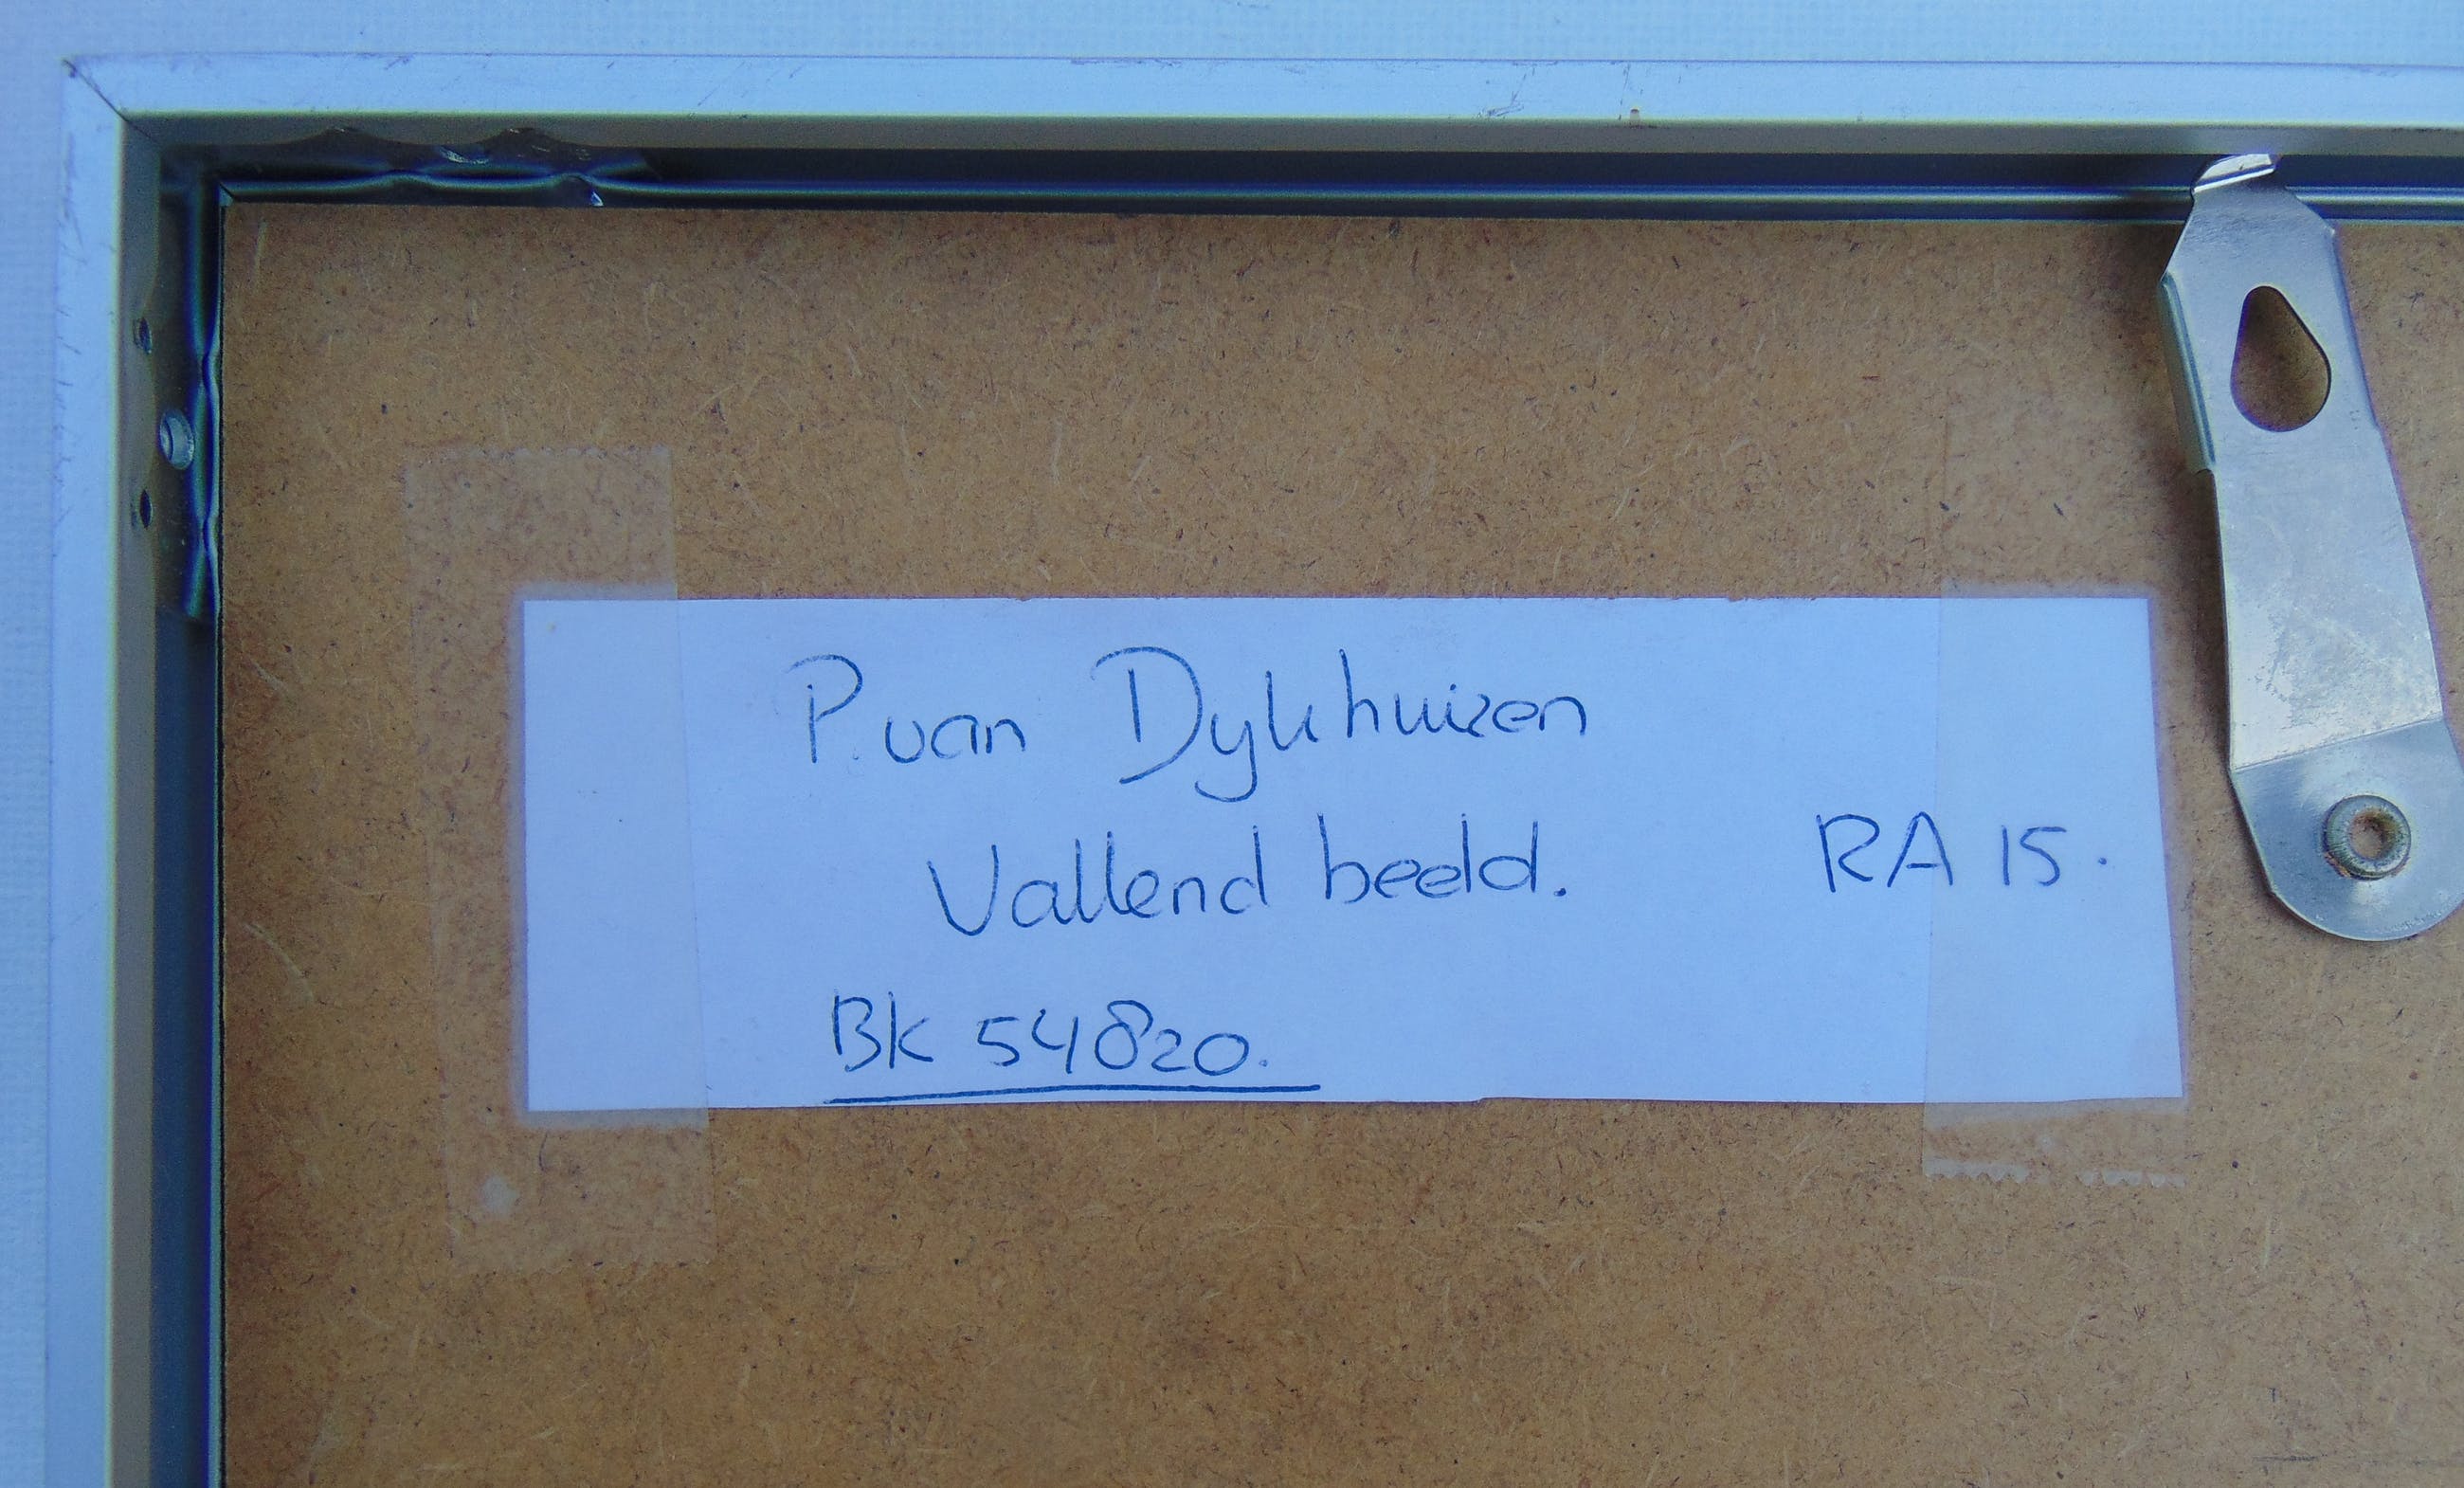 P. van Dykhuizen
Vallend beeld.
RA 15.
BK 54820.